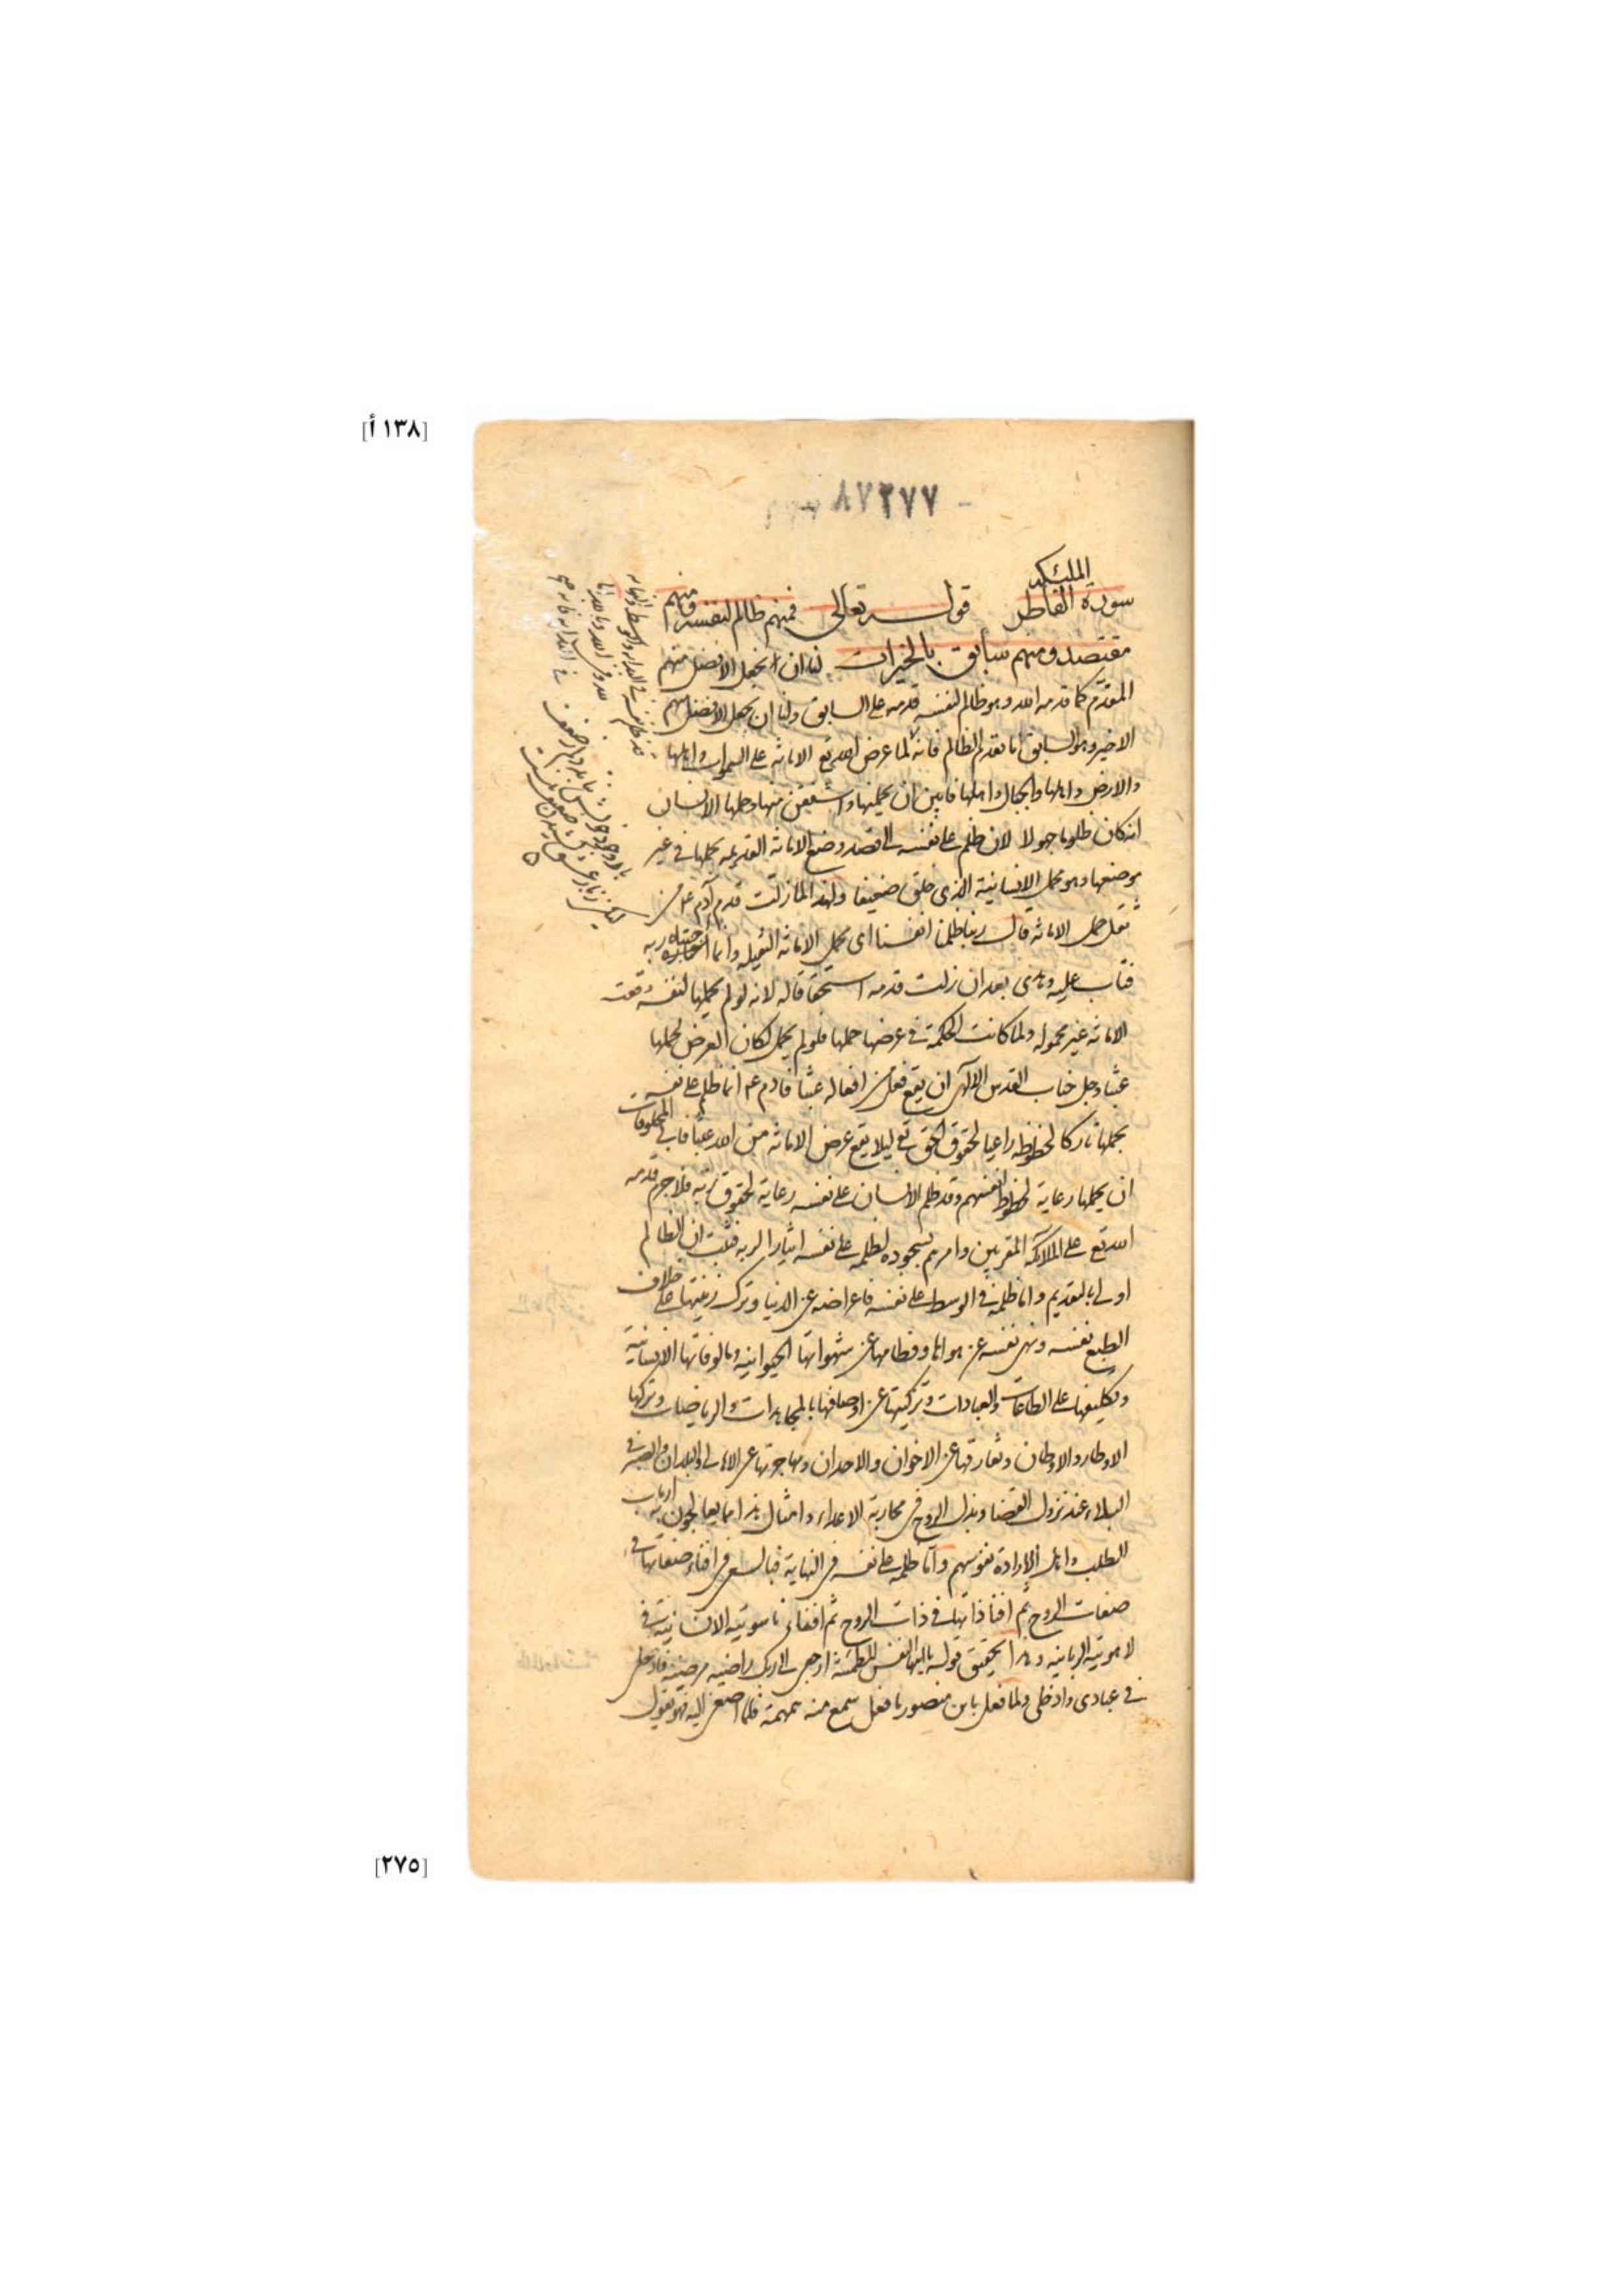 [١٣٨ أ]
٨٧٢٧٧
الملئكه
سورة الفاطر قوله تعالى فمنهم ظالم لنفسه ومنهم
مقتصد ومنهم سابق بالخيرات لنا ان نجعل الافضل منهم
المقدم كما قدمه الله وهو ظالم لنفسه قدمه على السابق ولنا ان نجعل الافضل منهم
الاخير وهو السابق اما تقدم الظالم فانه لما عرض الله تع الامانة على السموات واهلها
والارض واهلها والجبال واهلها فابين ان يحملنها واشفقن منها وحملها الانسان
انه كان ظلوما جهولا لان ظلم على نفسه في القصد وضع الامانة القديمه بحملها في غير
موضعها وهو محل الانسانية الذى خلق ضعيفا ولهذا لما زلت قدم آدم عم من
ثقل حمل الامانة قال ربنا ظلمنا انفسنا اى بحمل الامانة الثقيله وانما اجتباه ربه
فتاب عليه وهدى بعد ان زلت قدمه استحقاقا له لانه لو لم يحملها لنفسه وقعت
الامانة غير محموله ولما كانت الحكمة في عرضها حملها فلو لم يحمل لكان العرض لحملها
عبثا وجل جناب القدس الالهى ان يقع فعل من افعاله عبثا فادم عم انما ظلم على نفسه
بحملها تاركا لحظوظه راعيا لحقوق الحق تع ليلا يقع عرض الامانة من الله عبثا فابى المخلوقات
ان يحملها رعاية لحظوظ انفسهم وقد ظلم الانسان على نفسه رعاية لحقوق ربه فلا جرم قدمه
الله تع على الملائكة المقربين وامرهم بسجوده لظلمه على نفسه ايثارا لربه فثبت ان الظالم
اولى بالتقديم واما ظلمه في الوسط على نفسه فاعراضه عن الدنيا وترك زينتها على خلاف
الطبع نفسه ونهى نفسه عن هواها وفطامها عن شهواتها الحيوانيه ومالوفاتها الانسانية
وتكليفها على الطاعات والعبادات وتزكيتها عن اوصافها بالمجاهدات والرياضيات وتركها
الاوطار والاوطان ومفارقتها عن الاخوان والاخدان ومهاجرتها عن الاهالى والبلدان والصبر في
البلاء عند نزول القضا وبذل الروح في محاربة الاعداء وامثال هذا مما يعالجون به ارباب
الطلب واهل الارادة نفوسهم واما ظلمه على نفسه في النهاية فبالسعى في افناء صفاتها في
صفات الروح ثم افنا ذاتها في ذات الروح ثم افناء ناسوتيه الانسانية في
لاهوتية الربانيه وهذا تحقيق قوله يا ايتها النفس المطمئنة ارجعى الى ربك راضيه مرضية فادخلى
في عبادى وادخلى ولما فعل بابن منصور ما فعل سمع منه همهمة فلما اصغى اليه فهو يقول
[٢٧٥]